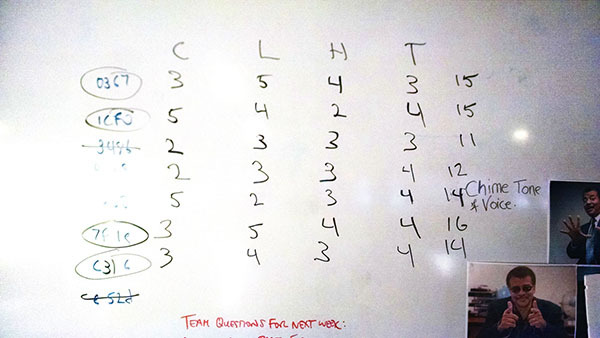 C L H T
0367 3 5 4 3 15
1CF0 5 4 2 4 15
3496 2 3 3 3 11
2 3 3 4 12
5 2 3 4 14
3 5 4 4 16
C316 3 4 3 4 14
Chime Tone
& Voice.
TEAM QUESTIONS FOR NEXT WEEK: